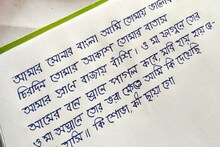 আমার সোনার বাংলা আমি তোমায় ভালোবাসি
চিরদিন তোমার আকাশ তোমার বাতাস
আমার প্রাণে বাজায় বাঁশি। ও মা ফাগুনে তোর
আমের বনে ঘ্রাণে পাগল করে, মরি হায় হায় রে
ও মা অঘ্রানে তোর ভরা ক্ষেতে আমি কি দেখেছি
হাসি॥ কি শোভা, কী ছায়া গো